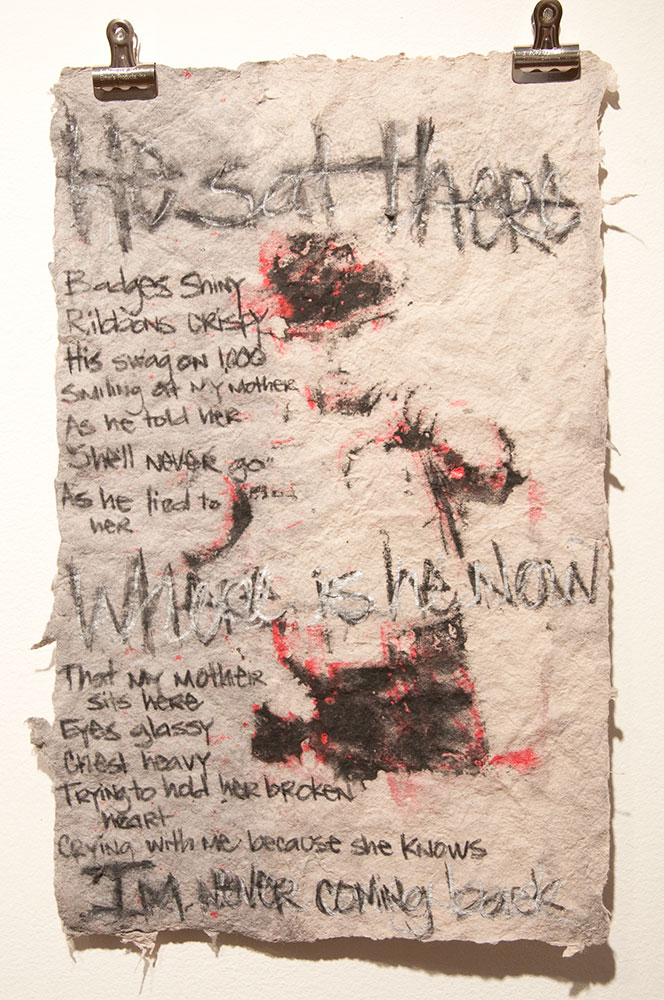 He sat there
Badges Shiny
Ribbons crispy
His swag on 1,000
Smiling at my mother
As he told her
"She'll never go"
As he lied to
her
Where is he now
That my mother
sits here
Eyes glassy
Chest heavy
Trying to hold her broken
heart
Crying with me because she knows
I'm never coming back